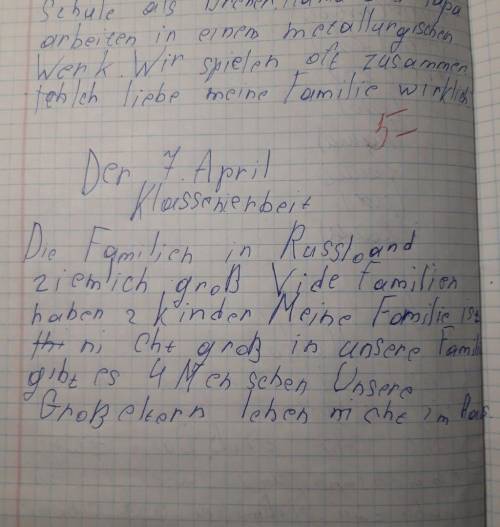 Schule als Lehrer. Mama und Papa
arbeiten in einem metallurgischen
Werk. Wir spielen oft zusammen
Ich liebe meine Familie wirklich
5-
Der 7. April
Klassenierbeit
Die Familien in Russland
ziemlich groß Viele familien
haben 2 kinder Meine Familie ist
ni cht groß in unsere Famili
gibt es 4 Men schen Unsere
Großeltern leben nicht im Haus